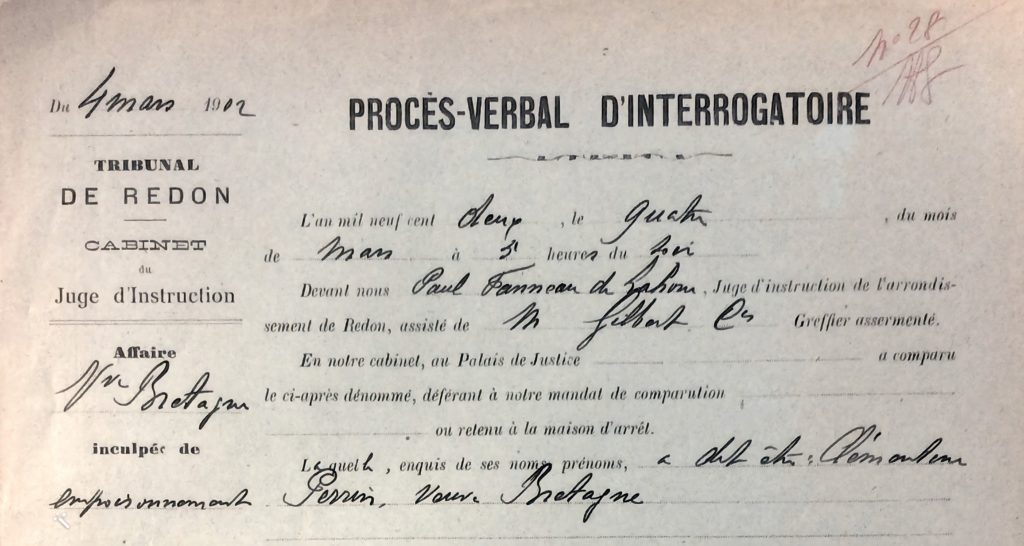 nº 28
Du 4 mars 1902
PROCÈS-VERBAL D'INTERROGATOIRE
TRIBUNAL
DE REDON
CABINET
du
Juge d'Instruction
Affaire
Vve Bretagne
inculpée de
empoisonnement
L'an mil neuf cent deux, le quatre, du mois
de mars à 5 heures du soir
Devant nous Paul Fanneau de Lahorie, Juge d'instruction de l'arrondis-
sement de Redon, assisté de M Gilbert Cis Greffier assermenté.
En notre cabinet, au Palais de Justice a comparu
le ci-après dénommé, déférant à notre mandat de comparution
ou retenu à la maison d'arrêt.
Laquelle, enquis de ses noms, prénoms, a dit être: Clémentine
Perrin, veuve Bretagne